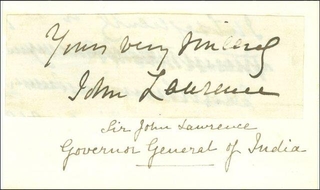 Yours very sincerely
John Lawrence
Sir John Lawrence
Governor General of India